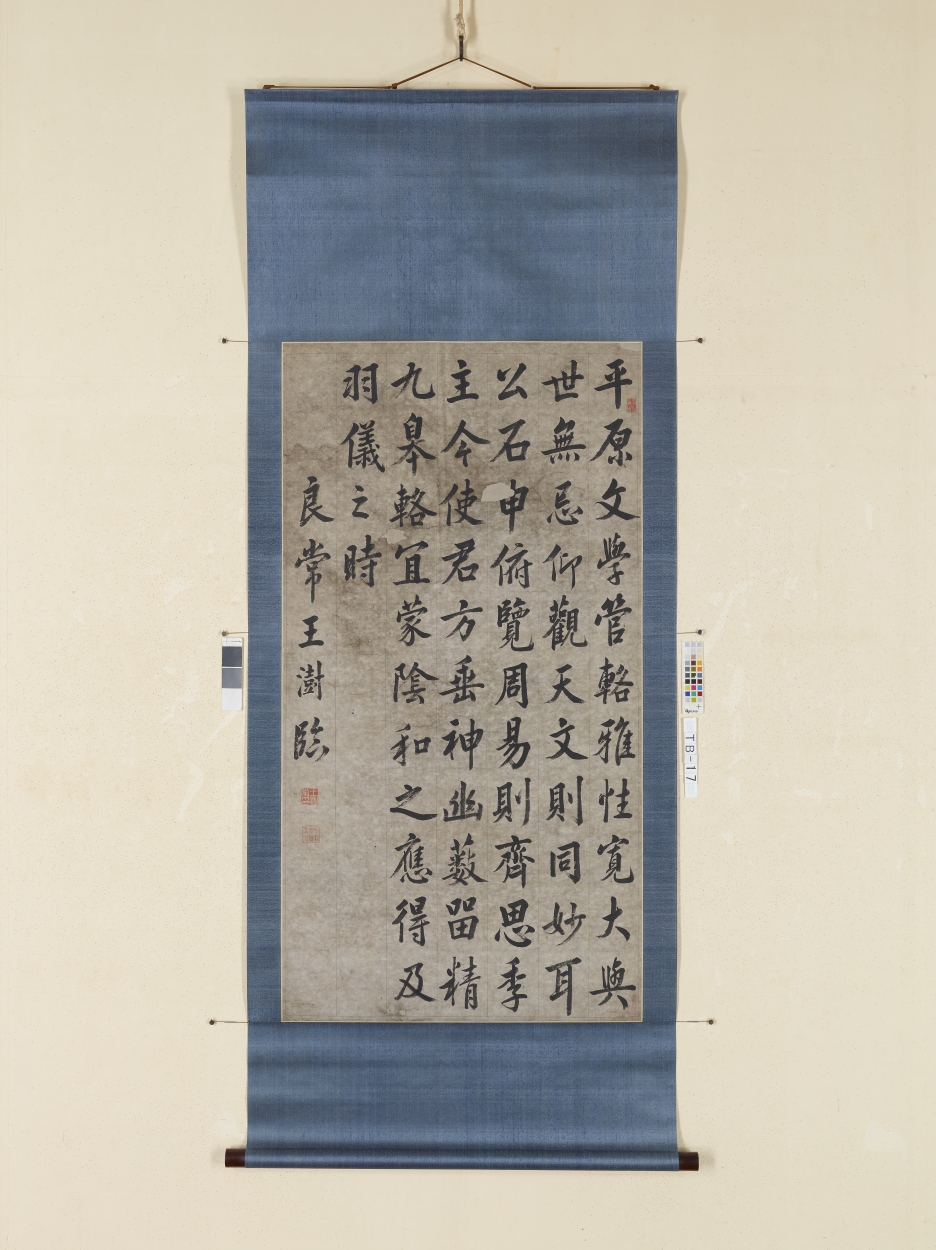 平原文學管輅雅性寬大與
世無忌仰觀天文則同妙耳
公石申俯覽周易則齊思季
主今使君方垂神幽藪留精
九皋輅宜蒙陰和之應得及
羽儀之時
良常王澍臨
TB-17